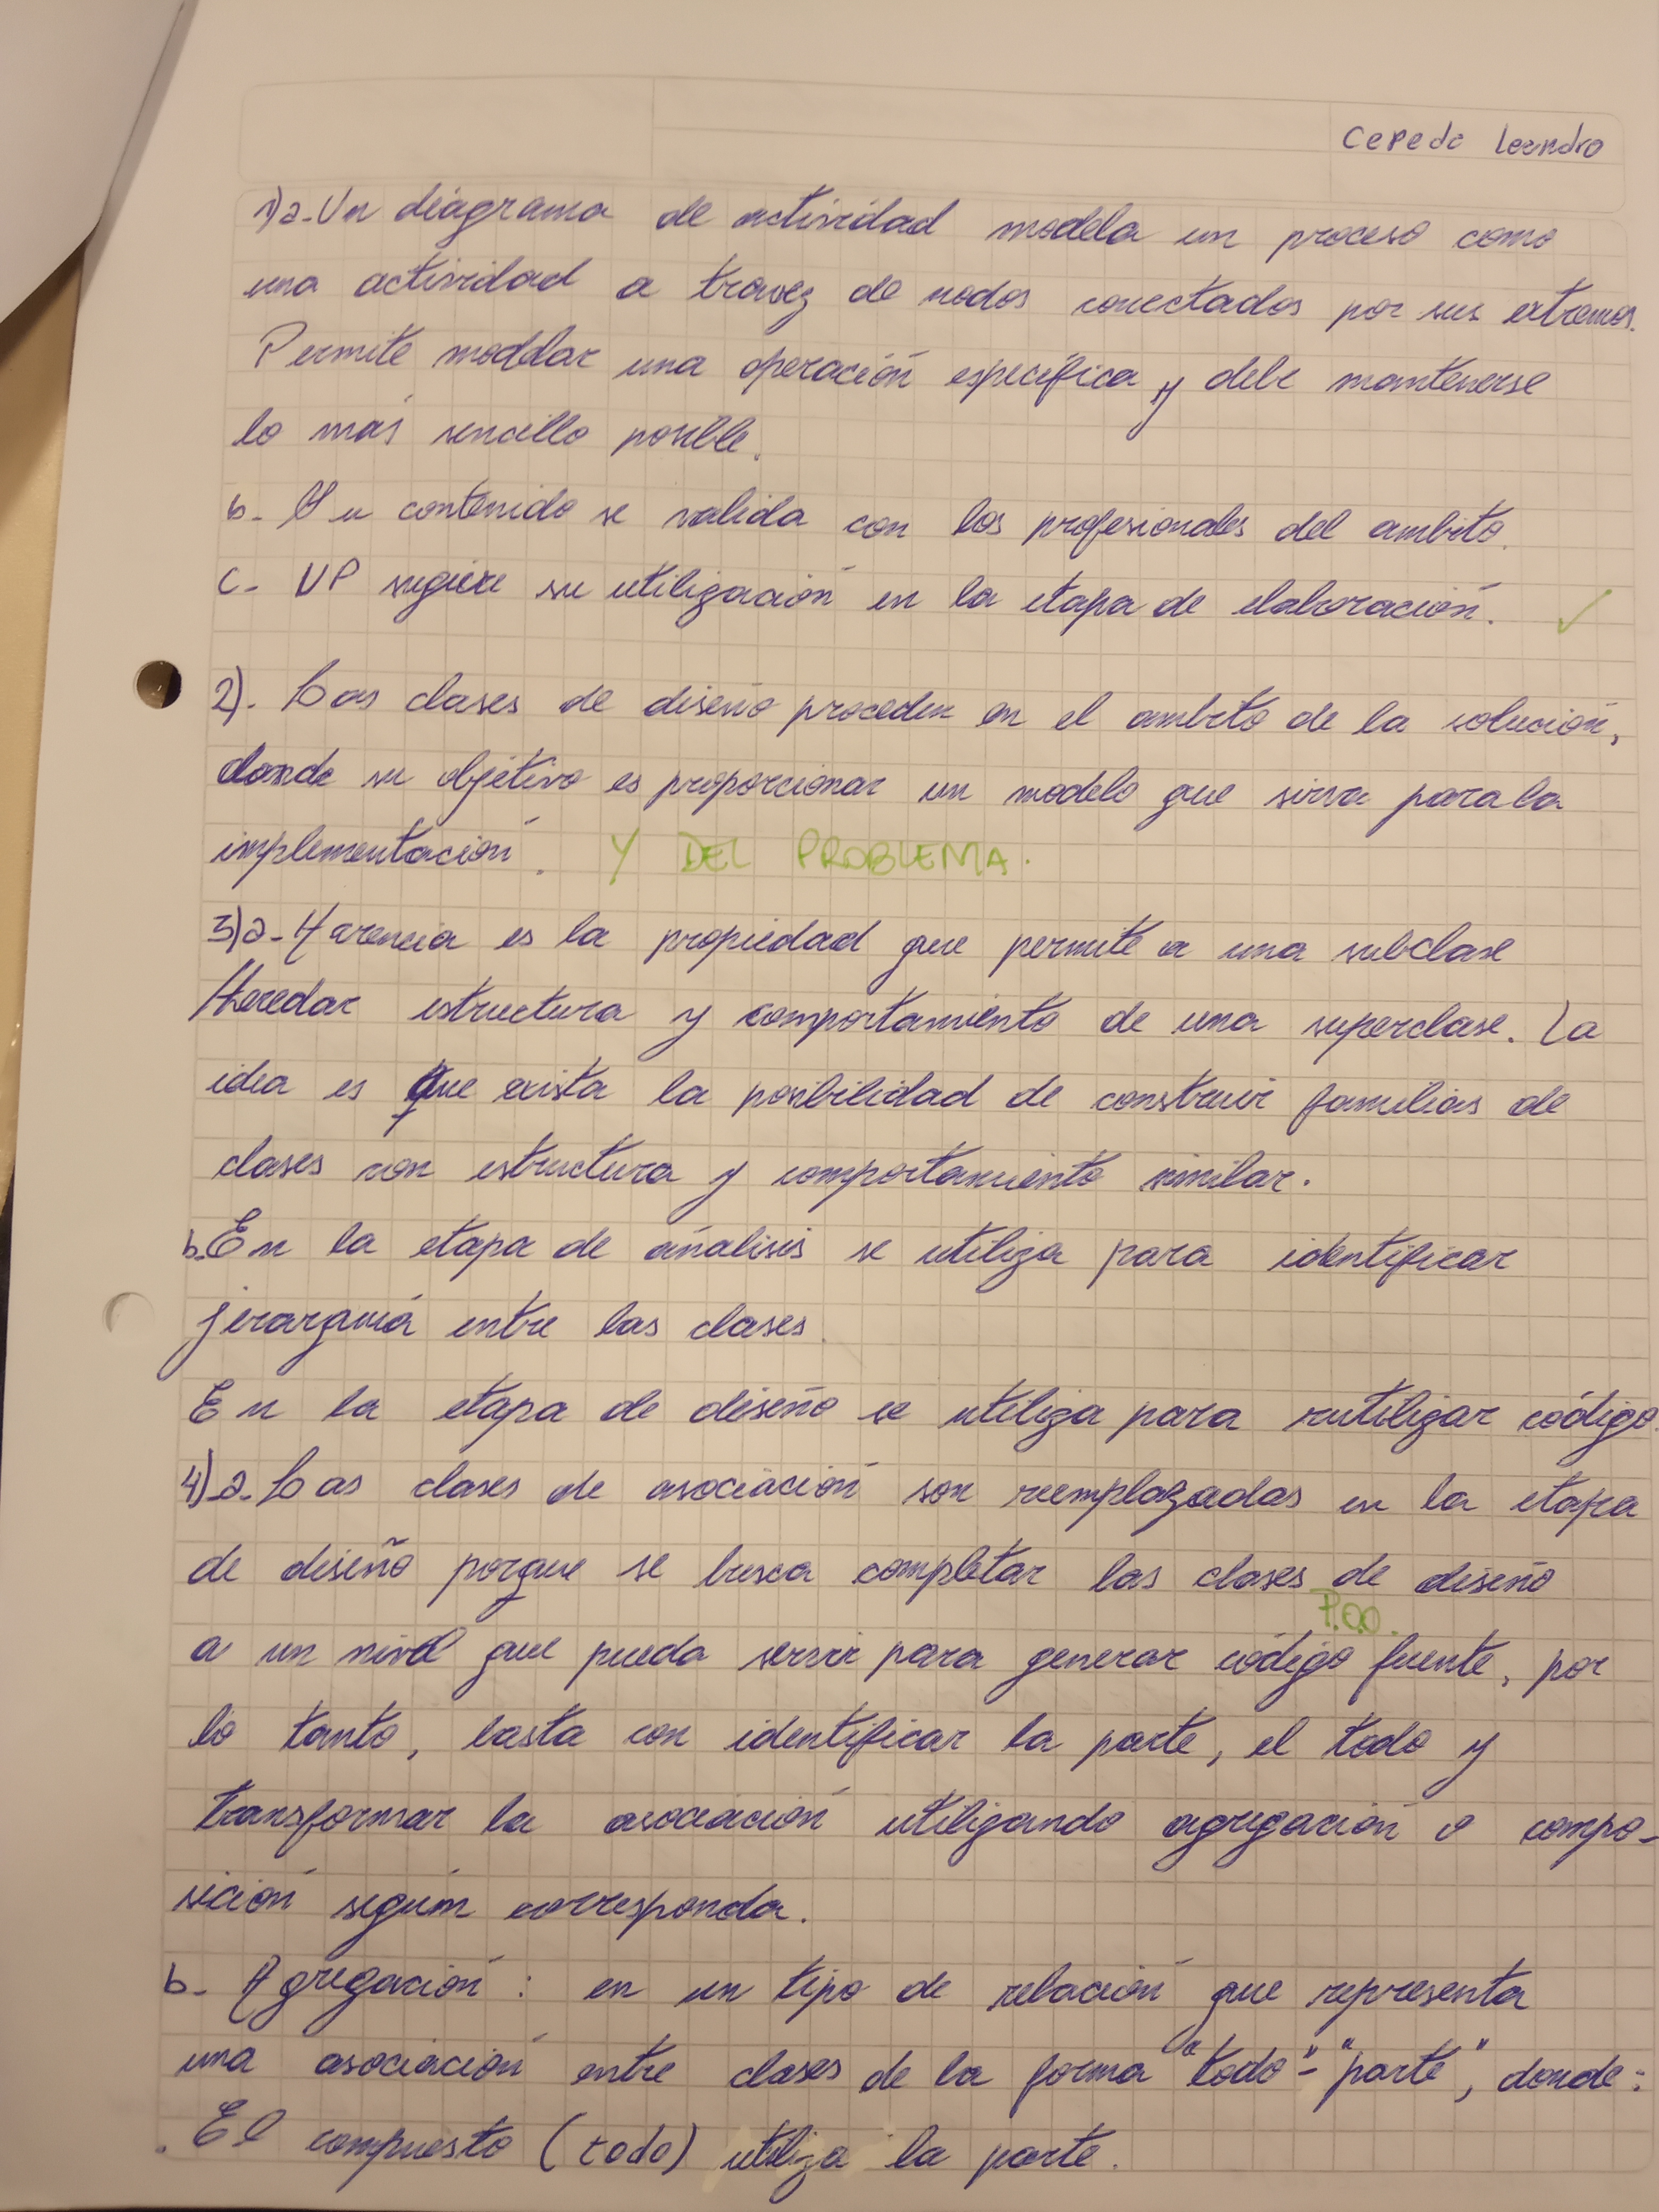 Cepeda Leandro
1)a-Un diagrama de actividad modela un proceso como
una actividad a travez de nodos conectados por sus extremos.
Permite modelar una operación específica y debe mantenerse
lo más sencillo posible.
b- Su contenido se valida con los profesionales del ambito.
c- UP sugiere su utilización en la etapa de elaboración. ✓
2). Las clases de diseño proceden en el ambito de la solución,
donde su objetivo es proporcionar un modelo que sirva para la
implementación. Y DEL PROBLEMA.
3)a-Herencia es la propiedad que permite a una subclase
Heredar estructura y comportamiento de una superclase. La
idea es que exista la posibilidad de construir familias de
clases con estructura y comportamiento similar.
b.En la etapa de análisis se utiliza para identificar
jerarquía entre las clases.
En la etapa de diseño se utiliza para reutilizar código.
4)a-Las clases de asociación son reemplazadas en la etapa
de diseño porque se busca completar las clases de diseño
P.O.O.
a un nivel que pueda servir para generar código fuente, por
lo tanto, basta con identificar la parte, el todo y
transformar la asociación utilizando agregación o compo-
sición según corresponda.
b- Agregación: en un tipo de relación que representa
una asociación entre clases de la forma "todo"-"parte", donde:
. El compuesto (todo) utiliza la parte.